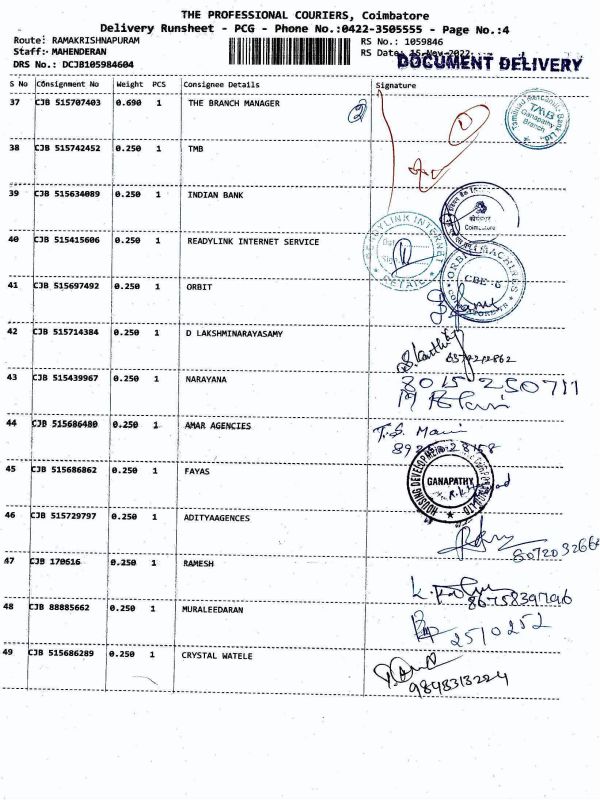 THE PROFESSIONAL COURIERS, Coimbatore
Delivery Runsheet - PCG - Phone No.:0422-3505555 - Page No.:4
Route: RAMAKRISHNAPURAM
RS No.: 1059846
Staff: MAHENDERAN
RS Date: 15-Nov-2022
DOCUMENT DELIVERY
DRS No.: DCJB105984604
S No Consignment No Weight PCS Consignee Details Signature
37 CJB 515707403 0.690 1 THE BRANCH MANAGER
Tamilnad Mercantile Bank Ltd
TMB
Ganapathy
Branch
38 CJB 515742452 0.250 1 TMB
39 CJB 515634089 0.250 1 INDIAN BANK
Coimbatore
40 CJB 515415606 0.250 1 READYLINK INTERNET SERVICE
READYLINK INTERNET
41 CJB 515697492 0.250 1 ORBIT
ORBIT MACHINES
CBE-6
42 CJB 515714384 0.250 1 D LAKSHMINARAYASAMY
S. Karthi
43 CJB 515439967 0.250 1 NARAYANA
8015250711
44 CJB 515686480 0.250 1 AMAR AGENCIES
T.S. Mani
45 CJB 515686862 0.250 1 FAYAS
HOUSING DEVELOPMENT
GANAPATHY
46 CJB 515729797 0.250 1 ADITYAAGENCES
8072032664
47 CJB 170616 0.250 1 RAMESH
8675839796
48 CJB 88885662 0.250 1 MURALEEDARAN
2510252
49 CJB 515686289 0.250 1 CRYSTAL WATELE
9848313224